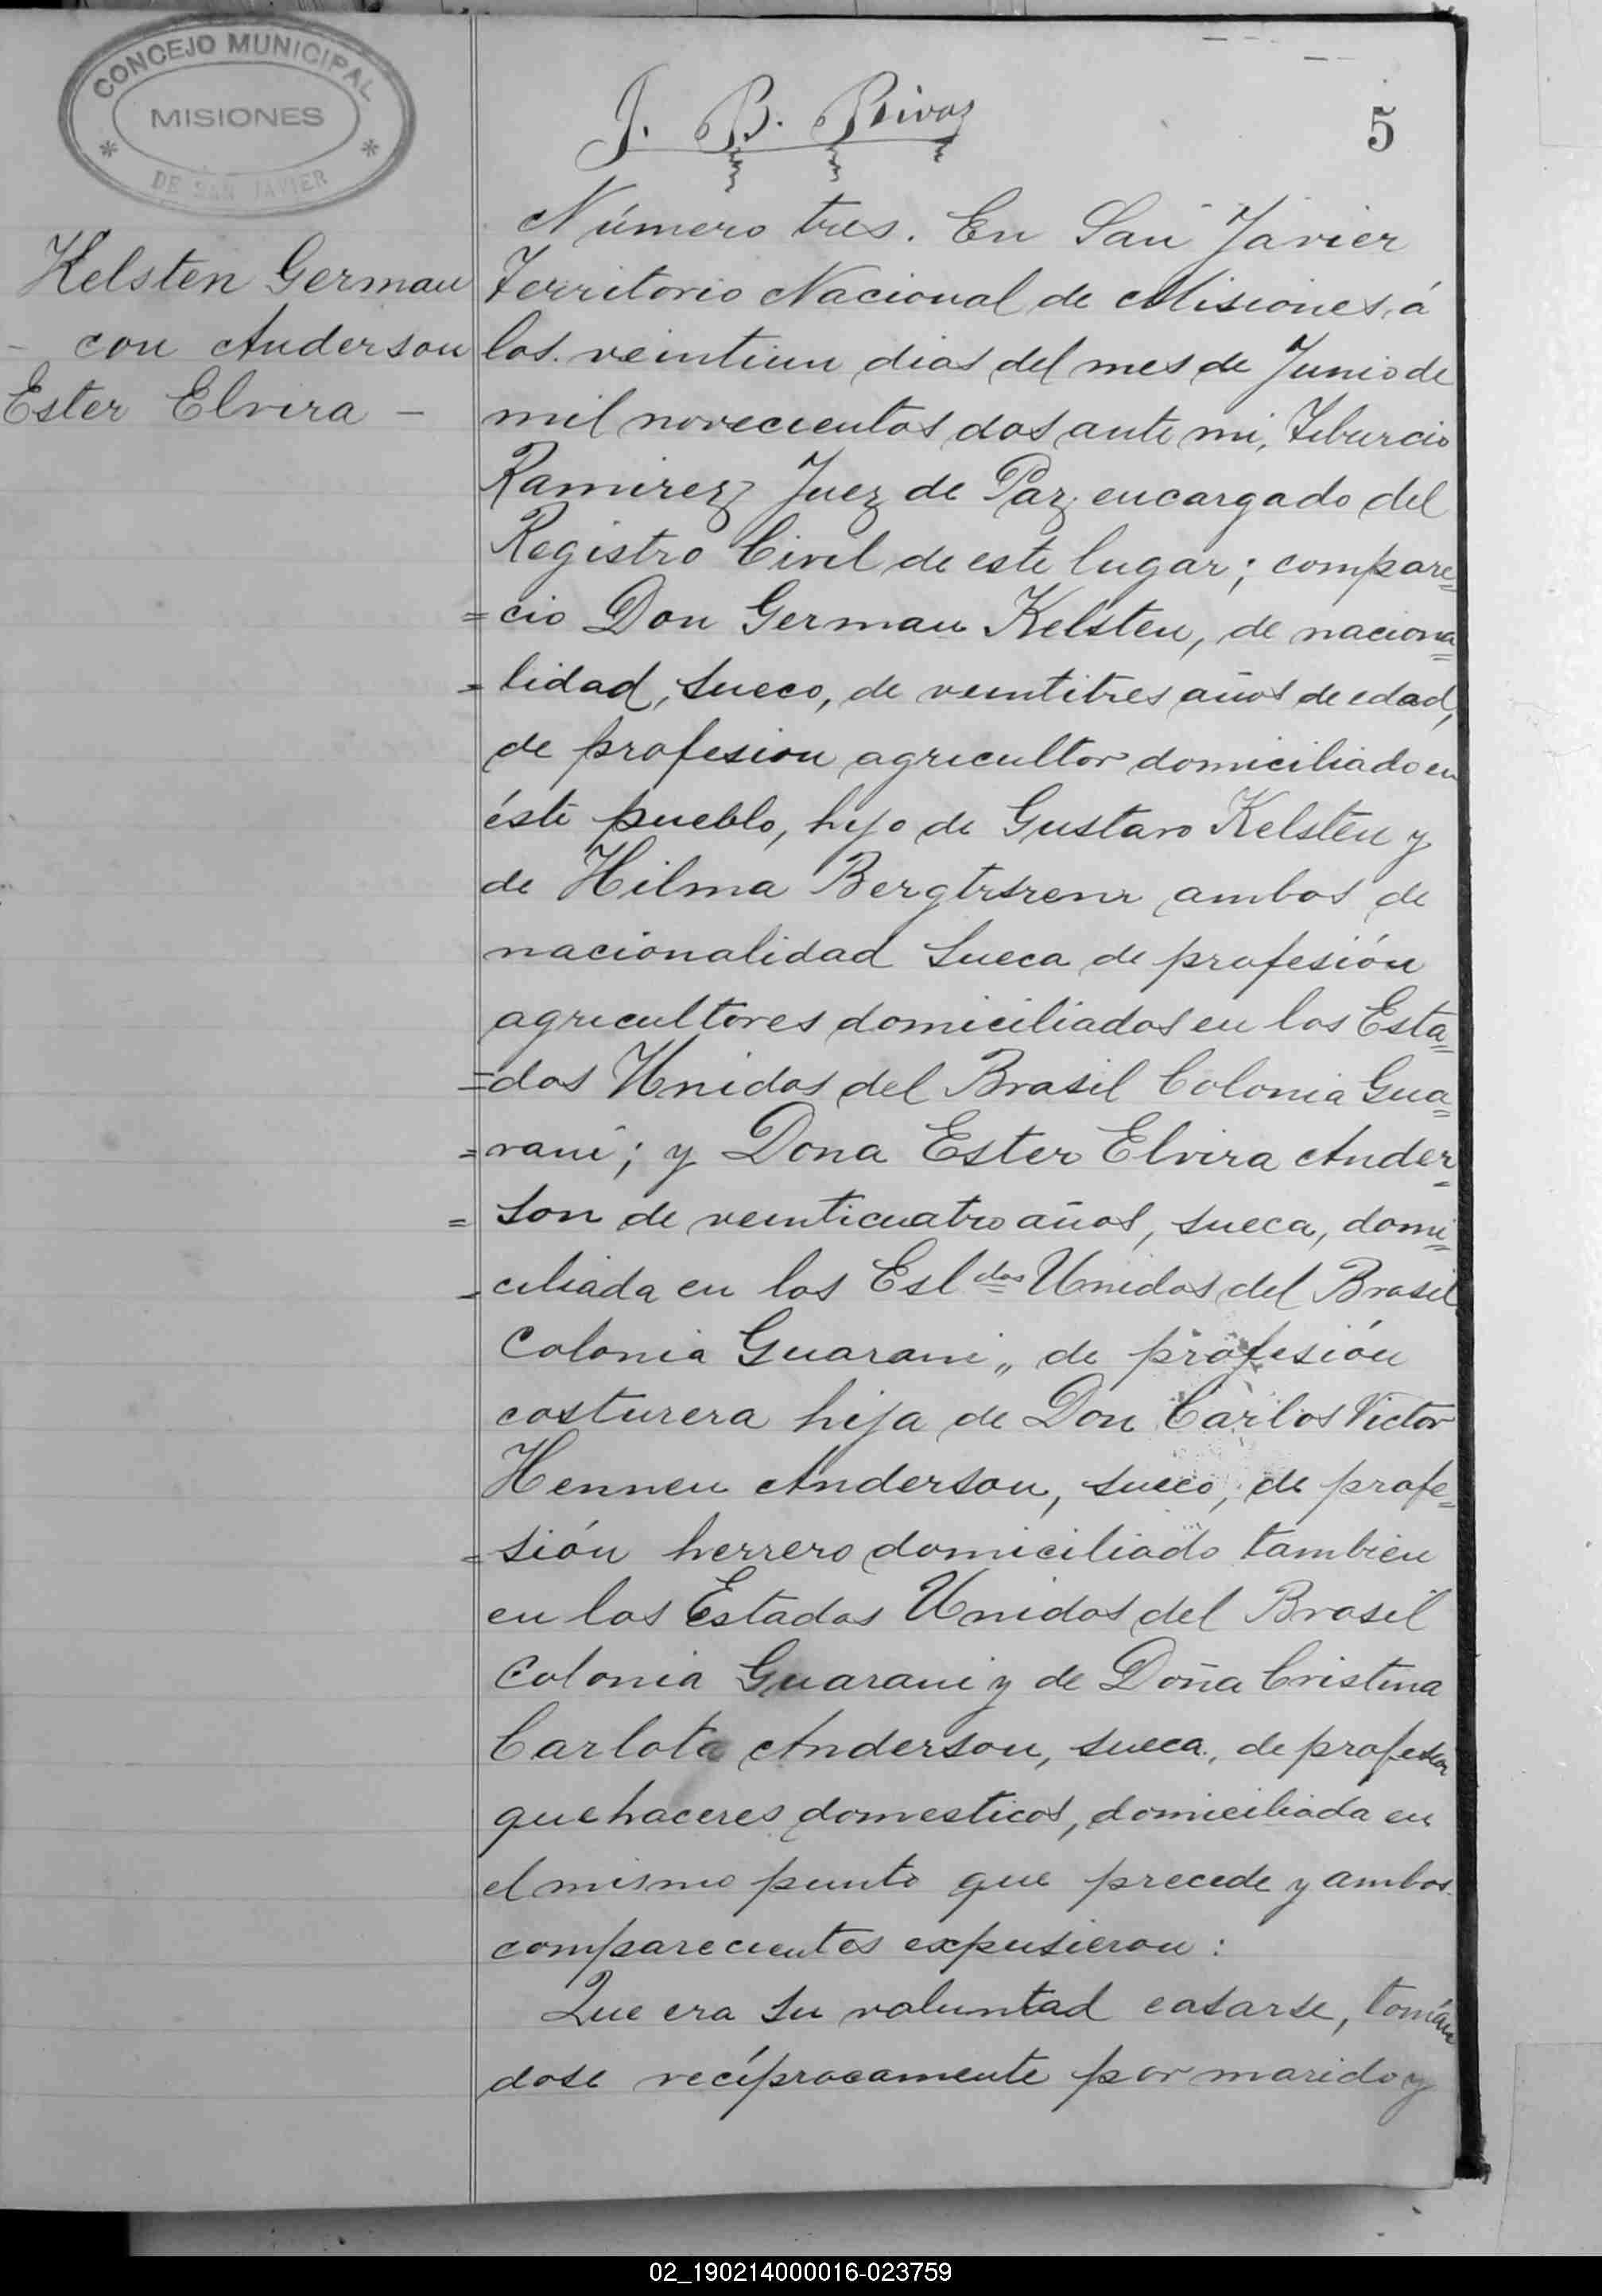 CONCEJO MUNICIPAL
MISIONES
DE SAN JAVIER
J. B. Rivas
5
Kelsten German
- con Anderson
Ester Elvira -
Número tres. En San Javier
Territorio Nacional de Misiones, á
los veintiun dias del mes de Junio de
mil novecientos dos ante mi, Tiburcio
Ramirez Juez de Paz encargado del
Registro Civil de este lugar; compare=
=cio Don German Kelsten, de naciona=
=lidad, sueco, de veintitres años de edad,
de profesion agricultor domiciliado en
éste pueblo, hijo de Gustavo Kelsten y
de Hilma ambos de
nacionalidad sueca de profesión
agricultores domiciliados en los Esta=
=dos Unidos del Brasil Colonia Gua=
=rani; y Dona Ester Elvira Ander=
=son de veinticuatro años, sueca, domi=
-ciliada en los Esl dos Unidos del Brasil
Colonia Guarani„ de profesión
costurera hija de Don Carlos Victor
Hennen Anderson, sueco, de profe=
=sión herrero domiciliado tambien
en los Estados Unidos del Brasil
Colonia Guarani y de Doña Cristina
Carlota Anderson, sueca, de profesion
quehaceres domesticos, domiciliada en
el mismo punto que precede y ambos
comparecientes expusieron:
Que era su voluntad casarse, tomán
dose recíprocamente por marido y
02_190214000016-023759